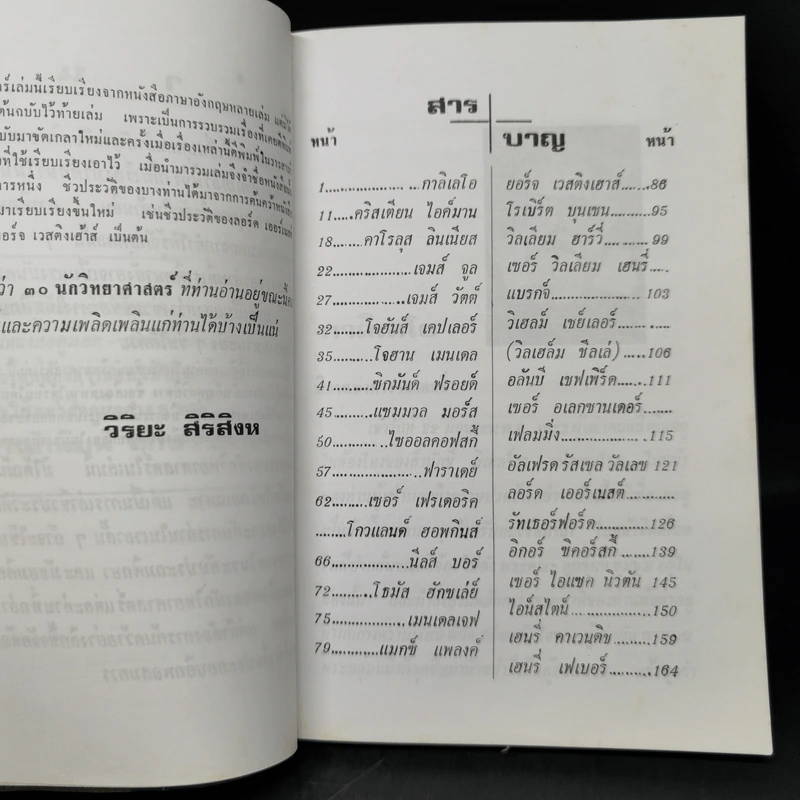 ร์เล่มนี้เรียบเรียงจากหนังสือภาษาอังกฤษหลายเล่ม
ต้นฉบับไว้ท้ายเล่ม เพราะเป็นการรวบรวมเรื่องที่เคยตีพิมพ์
บับมาขัดเกลาใหม่และครั้งเมื่อเรื่องเหล่านี้ตีพิมพ์ในวารสาร
ที่ใช้เรียบเรียงเอาไว้ เมื่อนำมารวมเล่มจึงจำชื่อหนังสือ
ารหนึ่ง ชีวประวัติของบางท่านได้มาจากการค้นคว้าหนังสือ
มาเรียบเรียงขึ้นใหม่ เช่นชีวประวัติของลอร์ด เออร์เนสต์
อร์จ เวสติงเฮ้าส์ เป็นต้น
ว่า ๓๐ นักวิทยาศาสตร์ ที่ท่านอ่านอยู่ขณะนี้
และความเพลิดเพลินแก่ท่านได้บ้างเป็นแน่
วิริยะ สิริสิงห
สาร
บาญ
หน้า
1..................... ...กาลิเลโอ
11.....คริสเตียน ไอค์มาน
18........คาโรลุส ลินเนียส
22..................เจมส์ จูล
27................เจมส์ วัตต์
32........โจฮันส์ เคปเลอร์
35..........โจฮาน เมนเดล
41.........ซิกมันด์ ฟรอยด์
45.........แซมมวล มอร์ส
50............ไซออลคอฟสกี้
57....................ฟาราเดย์
62.........เซอร์ เฟรเดอริค
....โกวแลนด์ ฮอพกินส์
66................นีลส์ บอร์
72..........โธมัส ฮักซเล่ย์
75..................เมนเดลเจฟ
79............แมกซ์ แพลงค์
หน้า
ยอร์จ เวสติงเฮาส์.......86
โรเบิร์ต บุนเซน..........95
วิลเลียม ฮาร์วี่............99
เซอร์ วิลเลียม เฮนรี่.....
แบรกจ์................ 103
วิเฮลม์ เชย์เลอร์............
(วิลเฮล์ม ชีลเล่) .....106
อลันบี เชฟเพิร์ด.......111
เซอร์ อเลกซานเดอร์.......
เฟลมมิ่ง.................. 115
อัลเฟรด รัสเซล วัลเลซ 121
ลอร์ด เออร์เนสต์............
รัทเธอร์ฟอร์ด............126
อิกอร์ ซิคอร์สกี้.........139
เซอร์ ไอแซค นิวตัน 145
ไอน์สไตน์................150
เฮนรี่ คาเวนดิช.........159
เฮนรี่ เฟเบอร์...........164